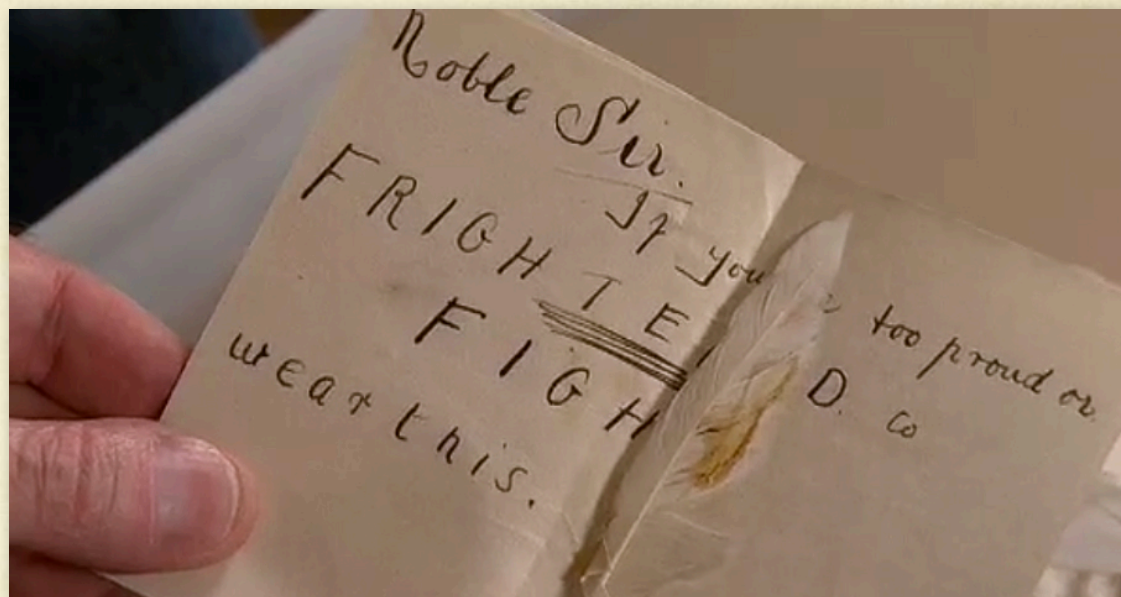 Noble Sir.
If you too proud or
FRIGHTE D. to
FIGH
wear this.